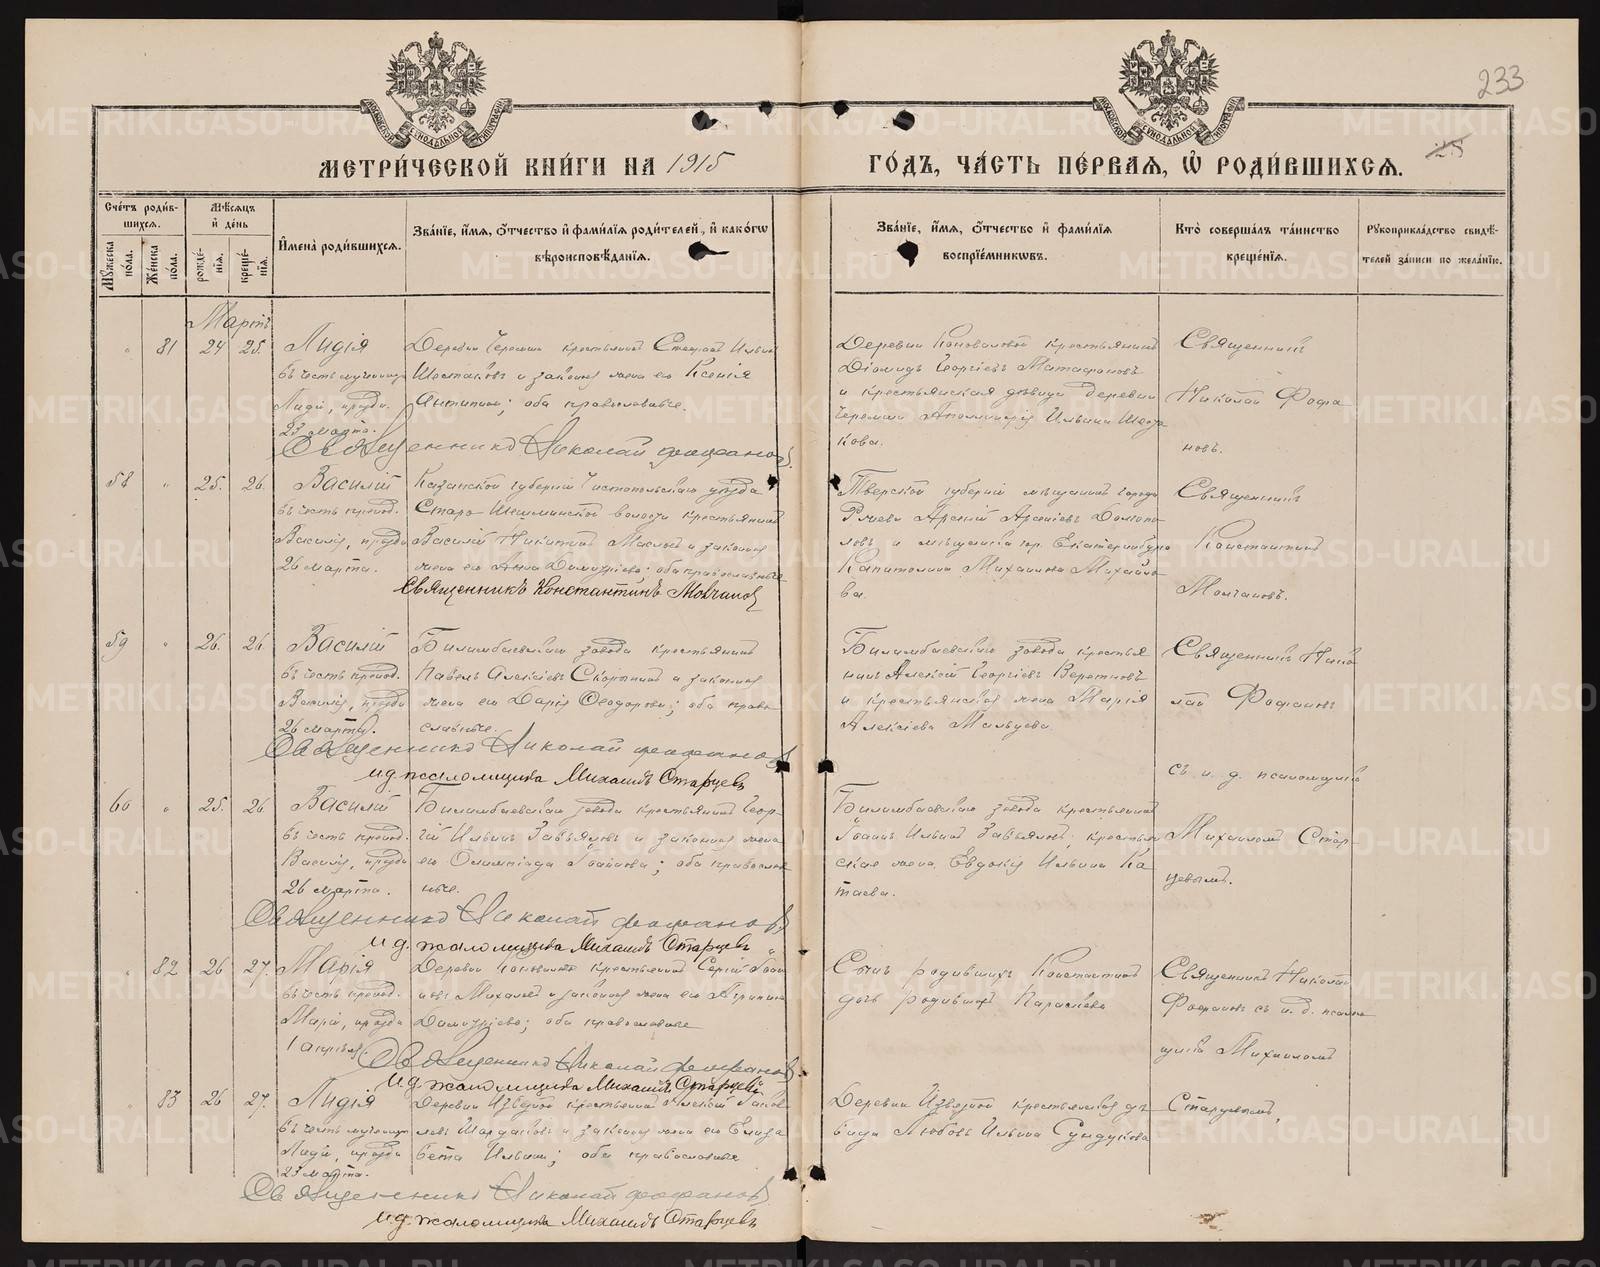 233
25
МЕТРИ́ЧЕСКОЙ КНИ́ГИ НА 1915
ГО́ДЪ, ЧА́СТЬ ПЕ́РВАЯ, Ѽ РОДИ́ВШИХСЯ.
Сче́тъ роди́в-
шихся.
Мѣ́сяцъ
и҆ де́нь
Мꙋ́жеска по́ла.
Же́нска по́ла.
рожде́-
нїя.
креще́-
нїя.
И҆мена̀ роди́вшихся.
Зва́нїе, и҆́мя, ѻ҆́тчество и҆ фами́лїя роди́телей, и҆ како́гѡ
вѣроисповѣ́данїя.
Зва́нїе, и҆́мя, ѻ҆́тчество и҆ фами́лїя
воспрїе́мникѡвъ.
Кто̀ соверша́лъ та́инство
креще́нїя.
Рꙋкоприкла́дство свидѣ́-
телей за́писи по жела́нїю.
Мартъ
" 81 24 25.
Лидія
въ честь мученицы
Лидіи, празд.
23 марта.
Деревни Черемши крестьянинъ Стефанъ Ильинъ
Шестаковъ и законная жена его Ксенія
Антипина; оба православные.
Священникъ Николай Фофановъ.
Деревни Коноваловой крестьянинъ
Діомидъ Георгіевъ Матафоновъ
и крестьянская дѣвица деревни
Черемши Аполлинарія Ильина Шеста
кова.
Священникъ
Николай Фофа
новъ.
58 " 25. 26.
Василій
въ честь препод.
Василія, празд.
26 марта.
Казанской губерніи Чистопольскаго уѣзда
Старо Шешминской волости крестьянинъ
Василій Никитинъ Масловъ и законная
жена его Анна Димитріева; оба православные
Священникъ Константинъ Молчановъ
Тверской губерніи мѣщанинъ города
Ржева Арсеній Арсеніевъ
и мѣщанка гор. Екатеринбурга
Капитолина Михаилова Михайло
ва.
Священникъ
Константинъ
Молчановъ.
59 " 26. 26.
Василій
въ честь препод.
Василія, празд.
26 марта.
Билимбаевскаго завода крестьянинъ
Павелъ Алексіевъ Скорынинъ и законная
жена его Дарія Ѳеодорова; оба право
славные.
Священникъ Николай Фофановъ
И.д. псаломщика Михаилъ Старцевъ
Билимбаевскаго завода крестья
нинъ Алексій Георгіевъ Веретновъ
и крестьянская жена Марія
Алексіева Мальцева.
Священникъ Нико
лай Фофановъ
съ и. д. псаломщика
60 " 25. 26
Василій
въ честь препод.
Василія, празд.
26 марта.
Билимбаевскаго завода крестьянинъ Геор-
гій Ильинъ Завьяловъ и законная жена
его Олимпіада Иванова; оба православ
ные.
Священникъ Николай Фофановъ
И.д. псаломщика Михаилъ Старцевъ
Билимбаевскаго завода крестьянинъ
Иванъ Ильинъ Завьяловъ; крестьян
ская жена Евдокія Ильина Ка
таева.
Михаиломъ Стар-
цевымъ.
" 82 26 27.
Марія
въ честь препод.
Маріи, празд.
1 апрѣля.
Деревни Коновалово крестьянинъ Сергій Іоан
новъ Михалевъ и законная жена его Агрипина
Димитріева; оба православные
Священникъ Николай Фофановъ.
И.д. псаломщика Михаилъ Старцевъ
Сынъ родившихъ Константинъ
дочь родившихъ Параскева
Священникъ Николай
Фофановъ съ и. д. псалом
щика Михаиломъ
83 26 27.
Лидія
въ честь мученицы
Лидіи, празд.
23 марта.
Деревни Извѣздной крестьянинъ Алексій Іаков
левъ Шардаковъ и законная жена его Елиза
вета Ильина; оба православные
Священникъ Николай Фофановъ
И.д. псаломщика Михаилъ Старцевъ
Деревни Извѣздной крестьянская дѣ
вица Любовь Ильина Сундукова
Старцевымъ.